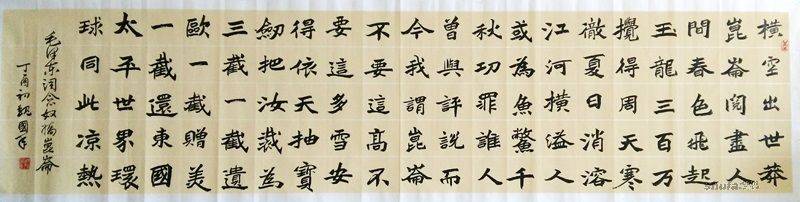 橫空出世莽
崑崙閱盡人
間春色飛起
玉龍三百万
攪得周天寒
徹夏日消溶
江河橫溢人
或為魚鱉千
秋功罪誰人
曾與評說而
今我謂崑崙
不要這高不
要這多雪安
得依天抽寶
劍把汝裁為
三截一截遺
歐一截贈美
一截還東國
太平世界環
球同此凉熱
毛泽东词念奴嬌崑崙
丁酉初魏國